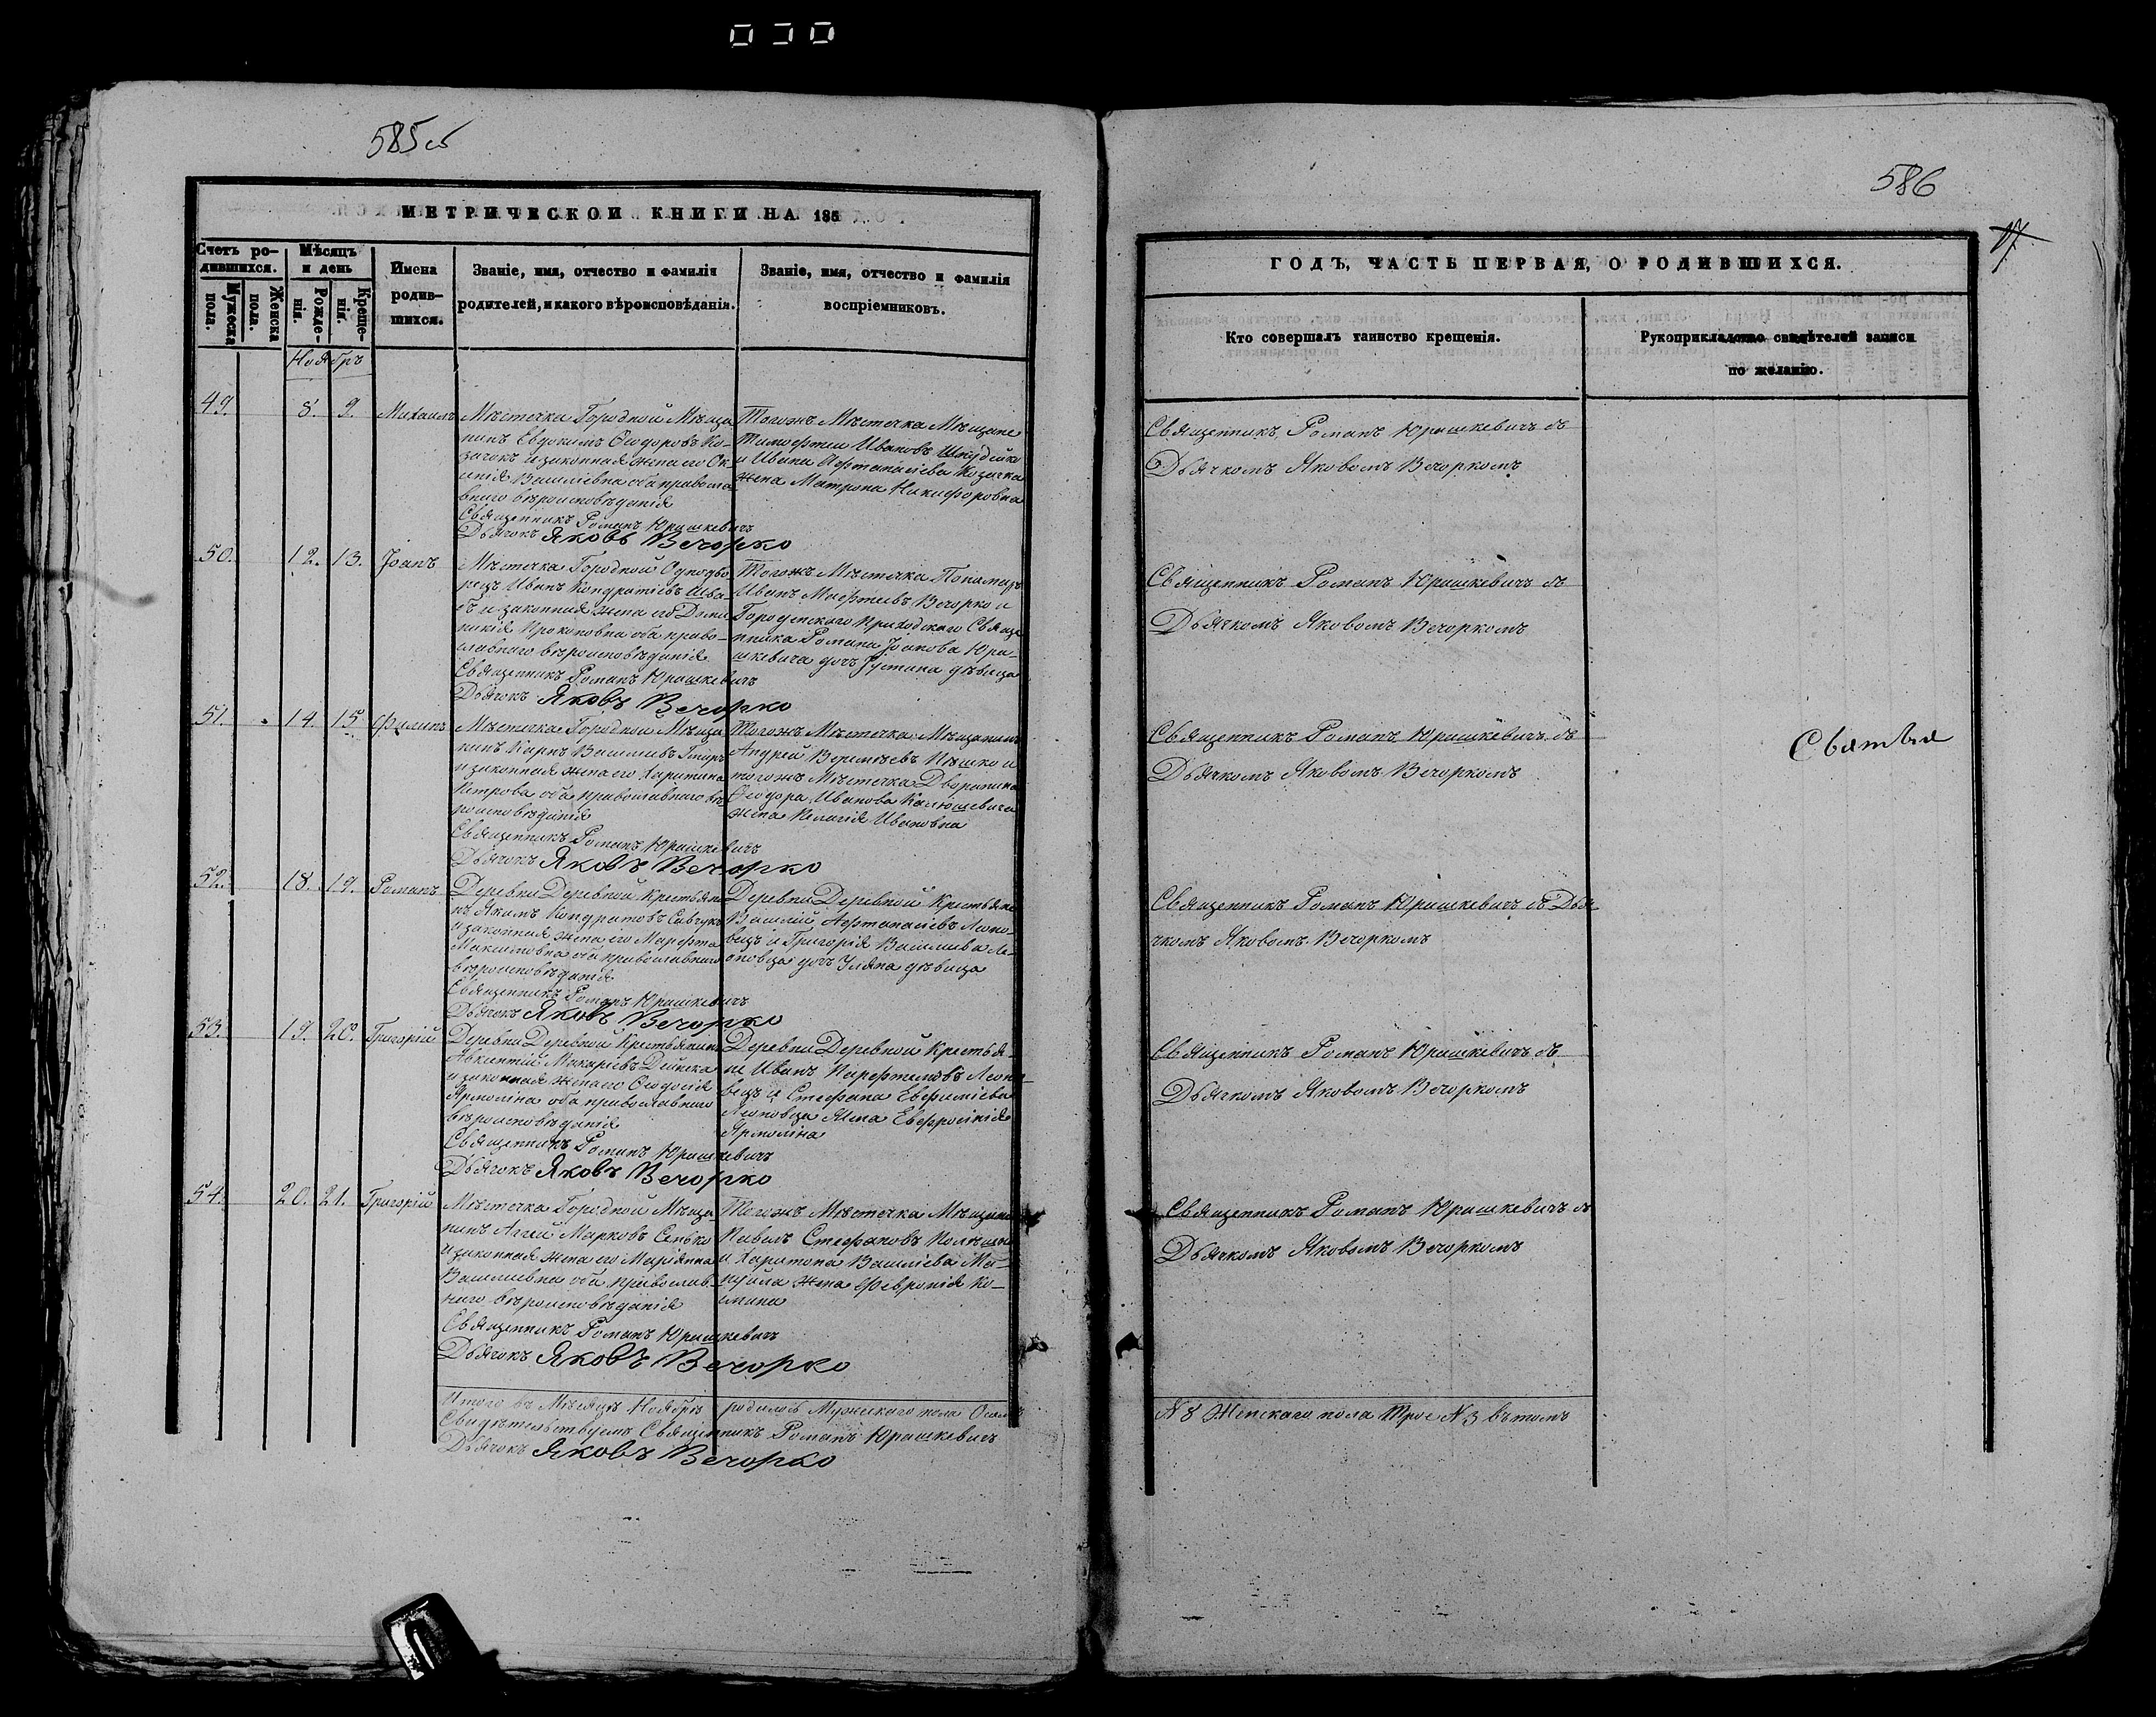 585 об
МЕТРИЧЕСКОЙ КНИГИ НА 185
Счетъ ро-
дившихся.
Мужеска
пола.
Женска
пола.
Мѣсяцъ
и день
Рожде-
нія.
Креще-
нія.
Имена
родив-
шихся.
Званіе, имя, отчество и фамилія
родителей, и какого вѣроисповѣданія.
Званіе, имя, отчество и фамилія
воспріемниковъ.
Ноябрь
49. 8. 9. Михаилъ
Мѣстечка Городной Мѣща
нинъ Евдокимъ Ѳеодоровъ Ко-
зачокъ и законная жена его
Василіевна оба правосла
внаго вѣроисповѣданія
Священникъ Романъ Юрашкевичъ
Дьячокъ Яковъ Вечорко
Тогожъ Мѣстечка Мѣщане
Тимофтей Ивановъ Шпудейко
и Ивана Афтанасіева Козачка
жена Матрона Никифоровна
50. 12. 13. Іоанъ
Мѣстечка Городной Однодво
рецъ Иванъ Кондратіевъ Шва
бъ и законная жена его Доми
никія Прокоповна оба право-
славнаго вѣроисповѣданія
Священникъ Романъ Юрашкевичъ
Дьячокъ Яковъ Вечорко
Тогожъ Мѣстечка
Иванъ Матфіевъ Вечорко и
Городенскаго Приходскаго Свяще
нника Романа Іоакова Юра-
шкевича дочь Іустина дѣвица
51. 14. 15. Филипъ
Мѣстечка Городной Мѣща
нинъ Карпъ Василіевъ
и законная жена его Харитина
Петрова оба православнаго вѣ
роисповѣданія
Священникъ Романъ Юрашкевичъ
Дьячокъ Яковъ Вечорко
Тогожъ Мѣстечка Мѣщанинъ
Андрей Пѣшко и
тогожъ Мѣстечка Дворянина
Ѳеодора Иванова
жена Пелагія Ивановна
52. 18. 19. Романъ
Деревни Деревной Крестьяни
нъ Якимъ Кондратовъ Савчукъ
и законная жена его Марфта
Максимовна оба православнаго
вѣроисповѣданія
Священникъ Романъ Юрашкевичъ
Дьячокъ Яковъ Вечорко
Деревни Деревной Крестьяне
Василій Афтанасіевъ Леоно-
вецъ и Григорія Василіева Ле-
оновца дочь Уляна дѣвица
53. 19. 20. Григорій
Деревни Деревной Крестьянинъ
Авксентій Макаріевъ Дейнека
и законная жена его Ѳеодосія
Ярмолина оба православнаго
вѣроисповѣданія
Священникъ Романъ Юрашкевичъ
Дьячокъ Яковъ Вечорко
Деревни Деревной Крестья-
не Иванъ Леоно-
вецъ и Стефана Евфиміева
Леоновца жена Евфросинія
Ярмолина
54. 20. 21. Григорій
Мѣстечка Городной Мѣща
нинъ Аггей Марковъ Сенько
и законная жена его Маріянна
Василіевна оба православ-
наго вѣроисповѣданія
Священникъ Романъ Юрашкевичъ
Дьячокъ Яковъ Вечорко
Тогожъ Мѣстечка Мѣщане
Павелъ Стефановъ
и Харитона Василіева
жена Февронія Ко-
смина
Итого въ Мѣсяцѣ Ноябрѣ родилось Мужескаго пола Осмъ
Свидѣтельствуемъ Священникъ Романъ Юрашкевичъ
Дьячокъ Яковъ Вечорко
586
17.
ГОДЪ, ЧАСТЬ ПЕРВАЯ, О РОДИВШИХСЯ.
Кто совершалъ таинство крещенія.
Рукоприкладство свидѣтелей записи
по желанію.
Священникъ Романъ Юрашкевичъ съ
Дьячкомъ Яковомъ Вечоркомъ
Священникъ Романъ Юрашкевичъ съ
Дьячкомъ Яковомъ Вечоркомъ
Священникъ Романъ Юрашкевичъ съ
Дьячкомъ Яковомъ Вечоркомъ
Священникъ Романъ Юрашкевичъ съ Дья
чкомъ Яковомъ Вечоркомъ
Священникъ Романъ Юрашкевичъ съ
Дьячкомъ Яковомъ Вечоркомъ
Священникъ Романъ Юрашкевичъ съ
Дьячкомъ Яковомъ Вечоркомъ
N 8 Женскаго пола Трое N 3 въ томъ